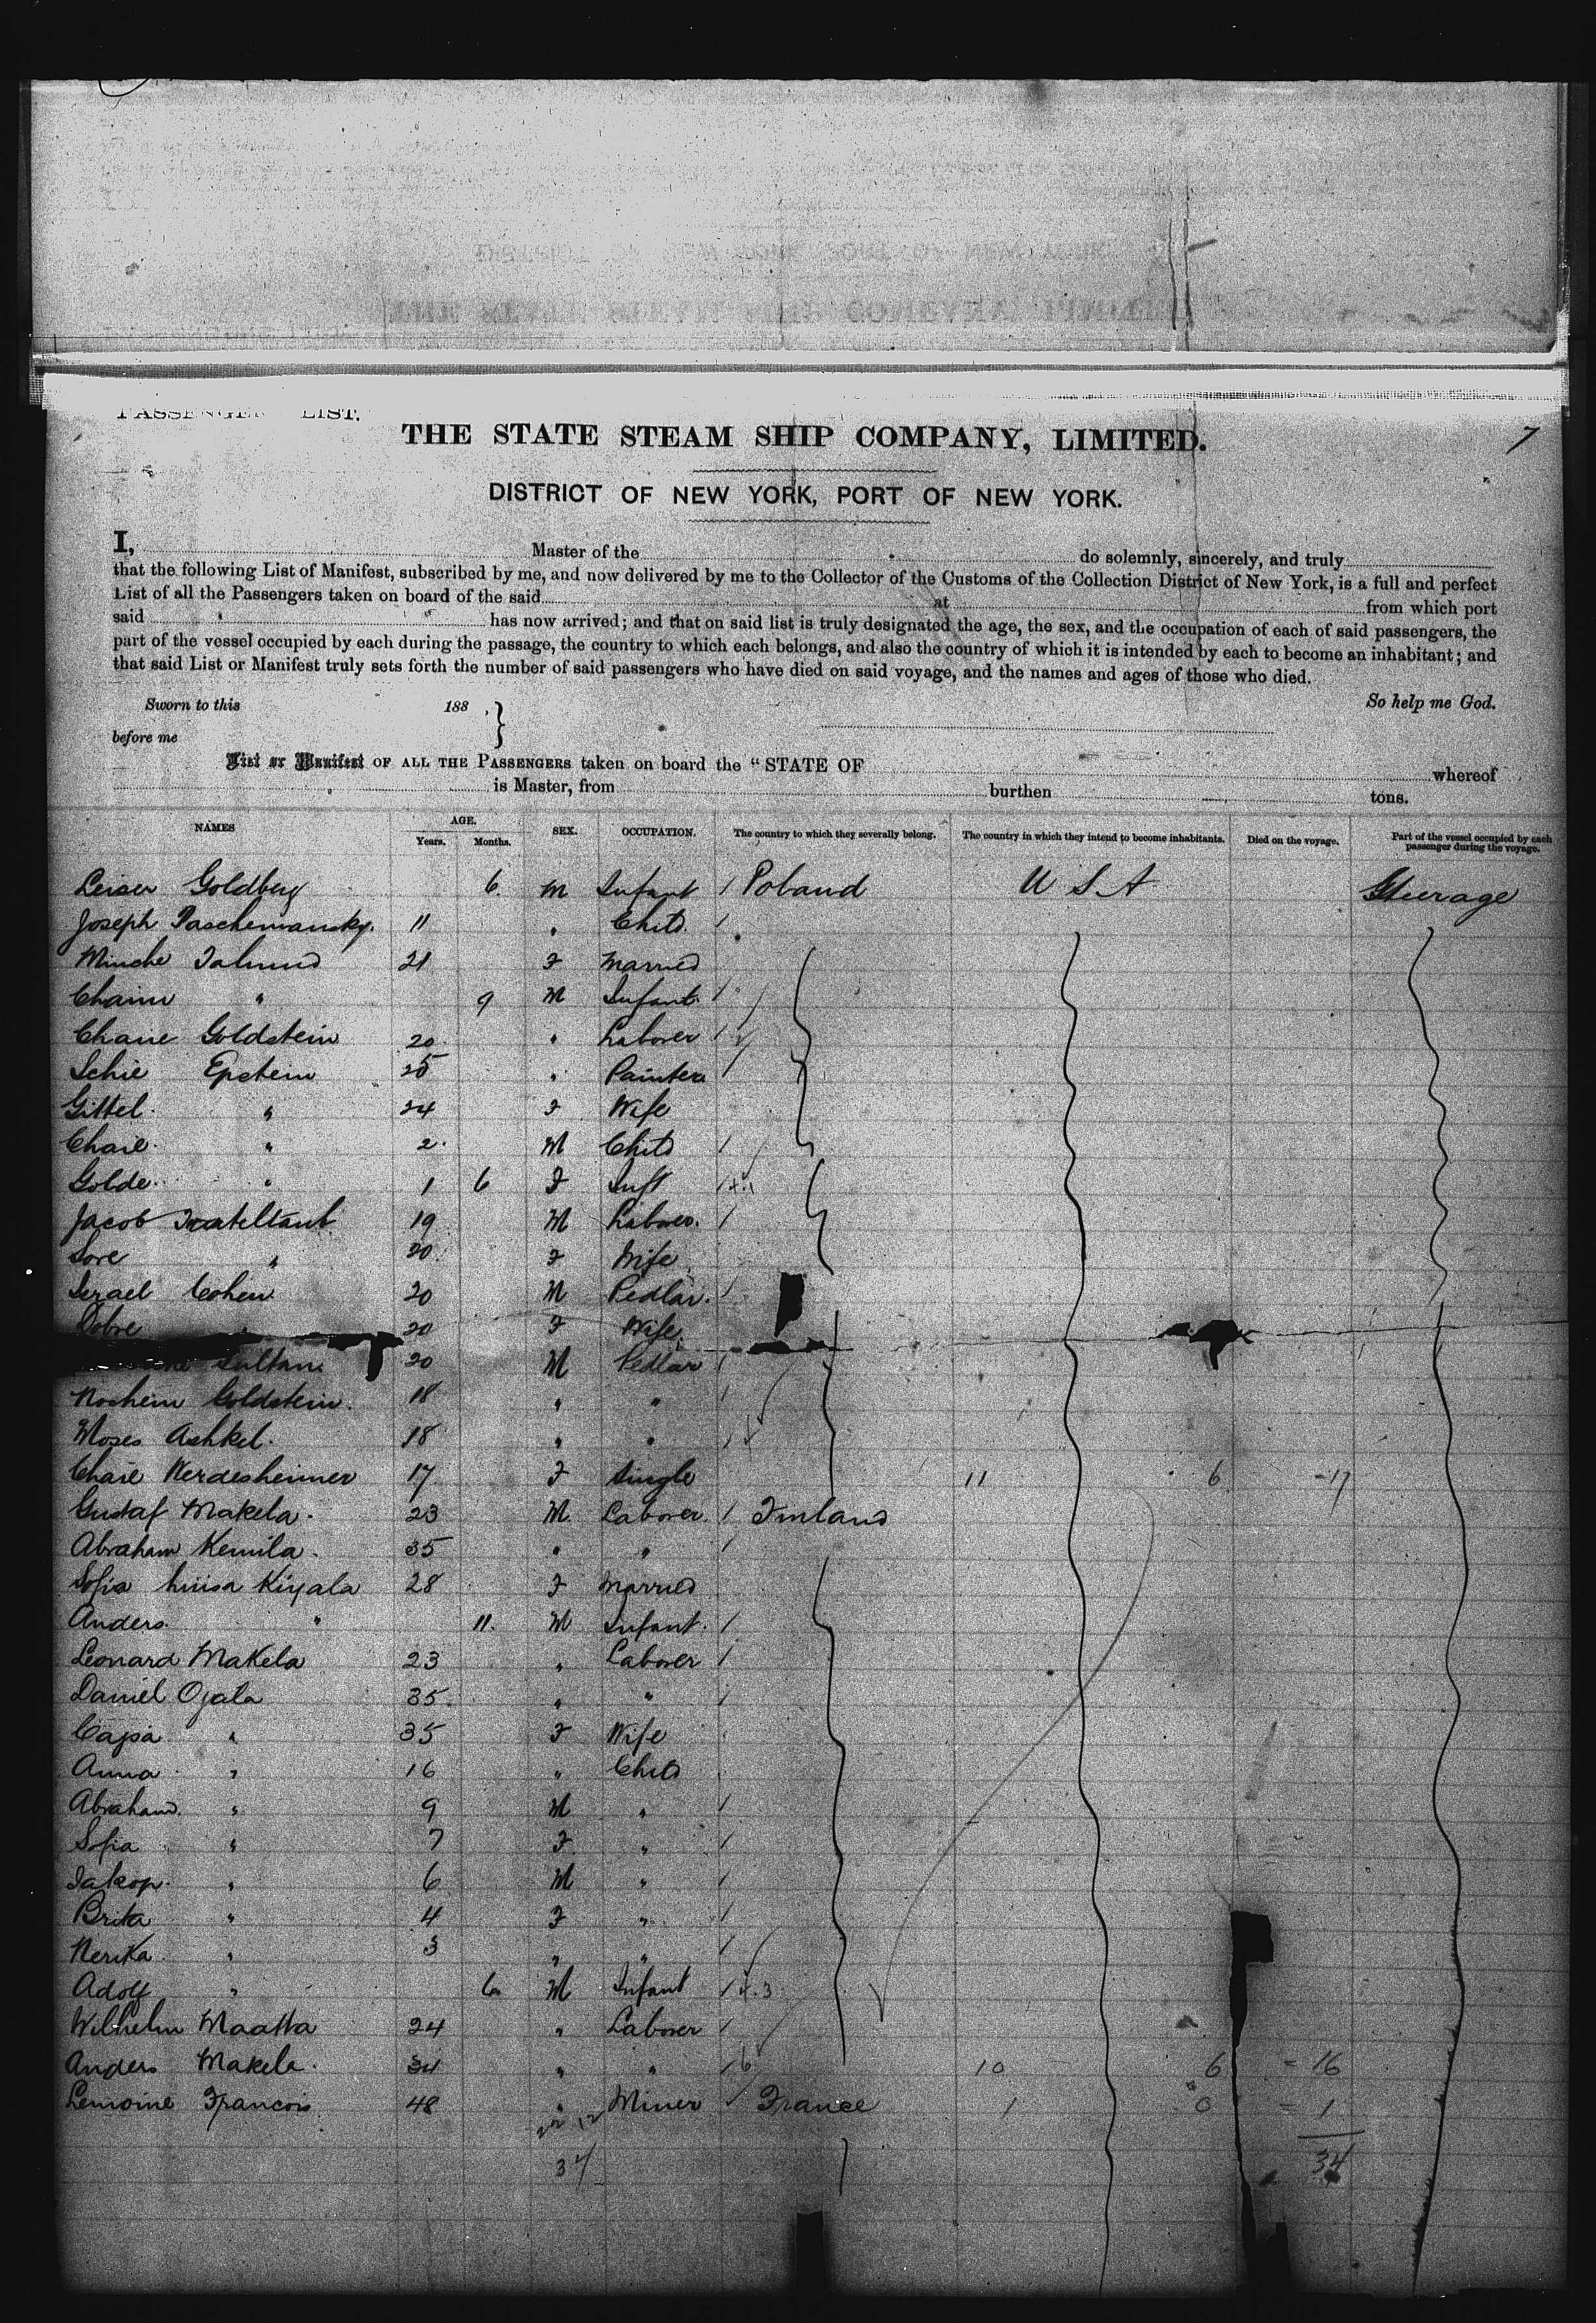 PASSENGER LIST.
THE STATE STEAM SHIP COMPANY, LIMITED.
7
DISTRICT OF NEW YORK, PORT OF NEW YORK.
I, Master of the do solemnly, sincerely, and truly
that the following List of Manifest, subscribed by me, and now delivered by me to the Collector of the Customs of the Collection District of New York, is a full and perfect
List of all the Passengers taken on board of the said at from which port
said has now arrived; and that on said list is truly designated the age, the sex, and the occupation of each of said passengers, the
part of the vessel occupied by each during the passage, the country to which each belongs, and also the country of which it is intended by each to become an inhabitant; and
that said List or Manifest truly sets forth the number of said passengers who have died on said voyage, and the names and ages of those who died.
Sworn to this 188 . So help me God.
before me
List or Manifest OF ALL THE PASSENGERS taken on board the "STATE OF whereof
is Master, from burthen tons.
NAMES AGE. Years. Months. SEX. OCCUPATION. The country to which they severally belong. The country in which they intend to become inhabitants. Died on the voyage. Part of the vessel occupied by each passenger during the voyage.
Leiser Goldberg 6 M Infant / Poland U S A Steerage
Joseph Paschemansky. 11 " Child /
Minche Talmud 21 F Married
Chaim " 9 M Infant /
Chaie Goldstein 20 " Laborer /
Schie Epstein 25 " Painter /
Gittel " 24 F Wife
Chaie " 2 M Child /
Golde " 1 6 F Inft /
Jacob 19 M Laborer /
Sore " 20 F Wife
Israel Cohen 20 M Pedlar /
Dobre 20 F Wife
Sultan 20 M Pedlar /
Nochem Goldstein 18 " " /
Moses Ashkel 18 " " /
Chaie Werdesheimer 17 F Single 11 6 -17
Gustaf Makela 23 M Laborer / Finland
Abraham Kemila 35 " " /
Sofia Luisa Kiyala 28 F Married
Anders " 11 M Infant /
Leonard Makela 23 " Laborer /
Daniel Ojala 35 " " /
Cajsa " 35 F Wife
Anna " 16 " Child
Abraham " 9 M " /
Sofia " 7 F " /
Jakop " 6 M " /
Brita " 4 F " /
Nerika " 3 " " /
Adolf " 6 M Infant /
Wilhelm Maatta 24 " Laborer /
Anders Makela 34 " " / 10 6 = 16
Lemoine Francois 48 " Miner / France 1 0 = 1
34 34